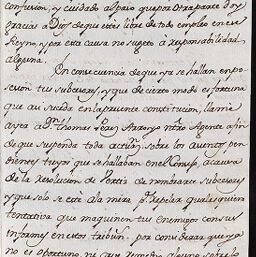 confusion, y cuidado al paso que por otra parte doy
gracias a Dios de que estés libre de todo empleo en ese
Reyno, y por esta causa no sugeto à responsabilidad
alguna.
En consecuencia de que ya se hallan en po-
sesion tus subcesores, y que de cierto modo es fortuna
que asi suceda en la presente constitucion,
à Dn. Thomas Perez Arroyo ntro Agente afin
de que suspenda toda actuaz.n sobre los asuntos pen-
dientes tuyos que se hallaban en el Consejo, à causa
de la resolucion de Pertis de nombrarte subcesores
y que solo se esté ala mira pa. repelar qualesquiera
tentativa que maquinen tus enemigos con sus
informes en estos tribun.s por considerar que ya
no es oportuno, ni que alguno sobre lo